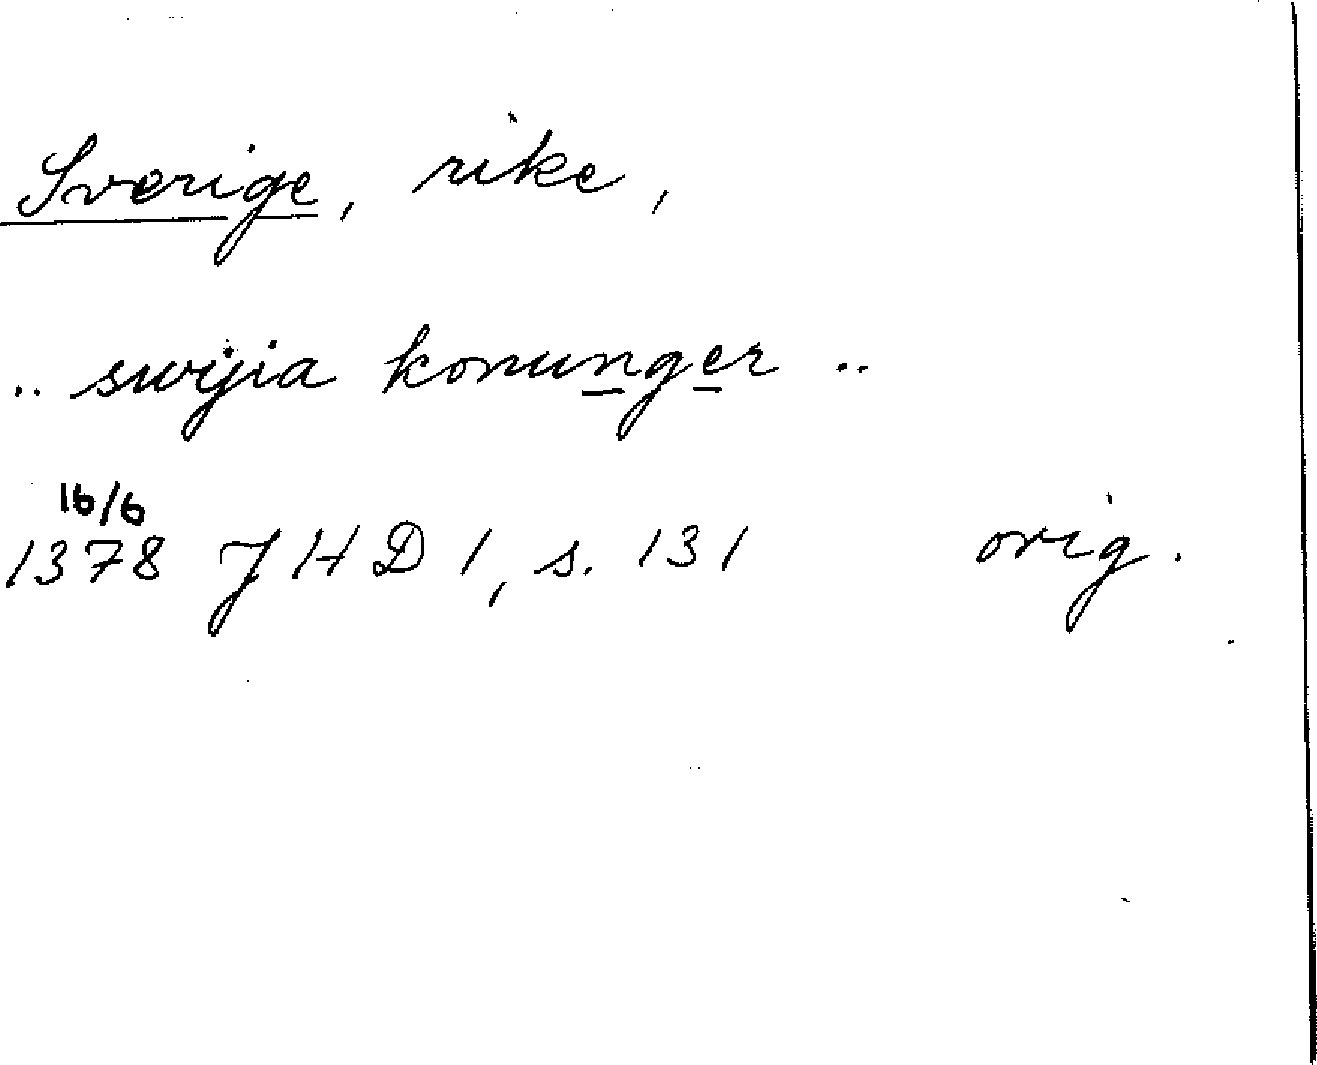 Sverige, rike,
.. swÿia konunger ..
16/6
1378 JHD 1, s. 131 orig.